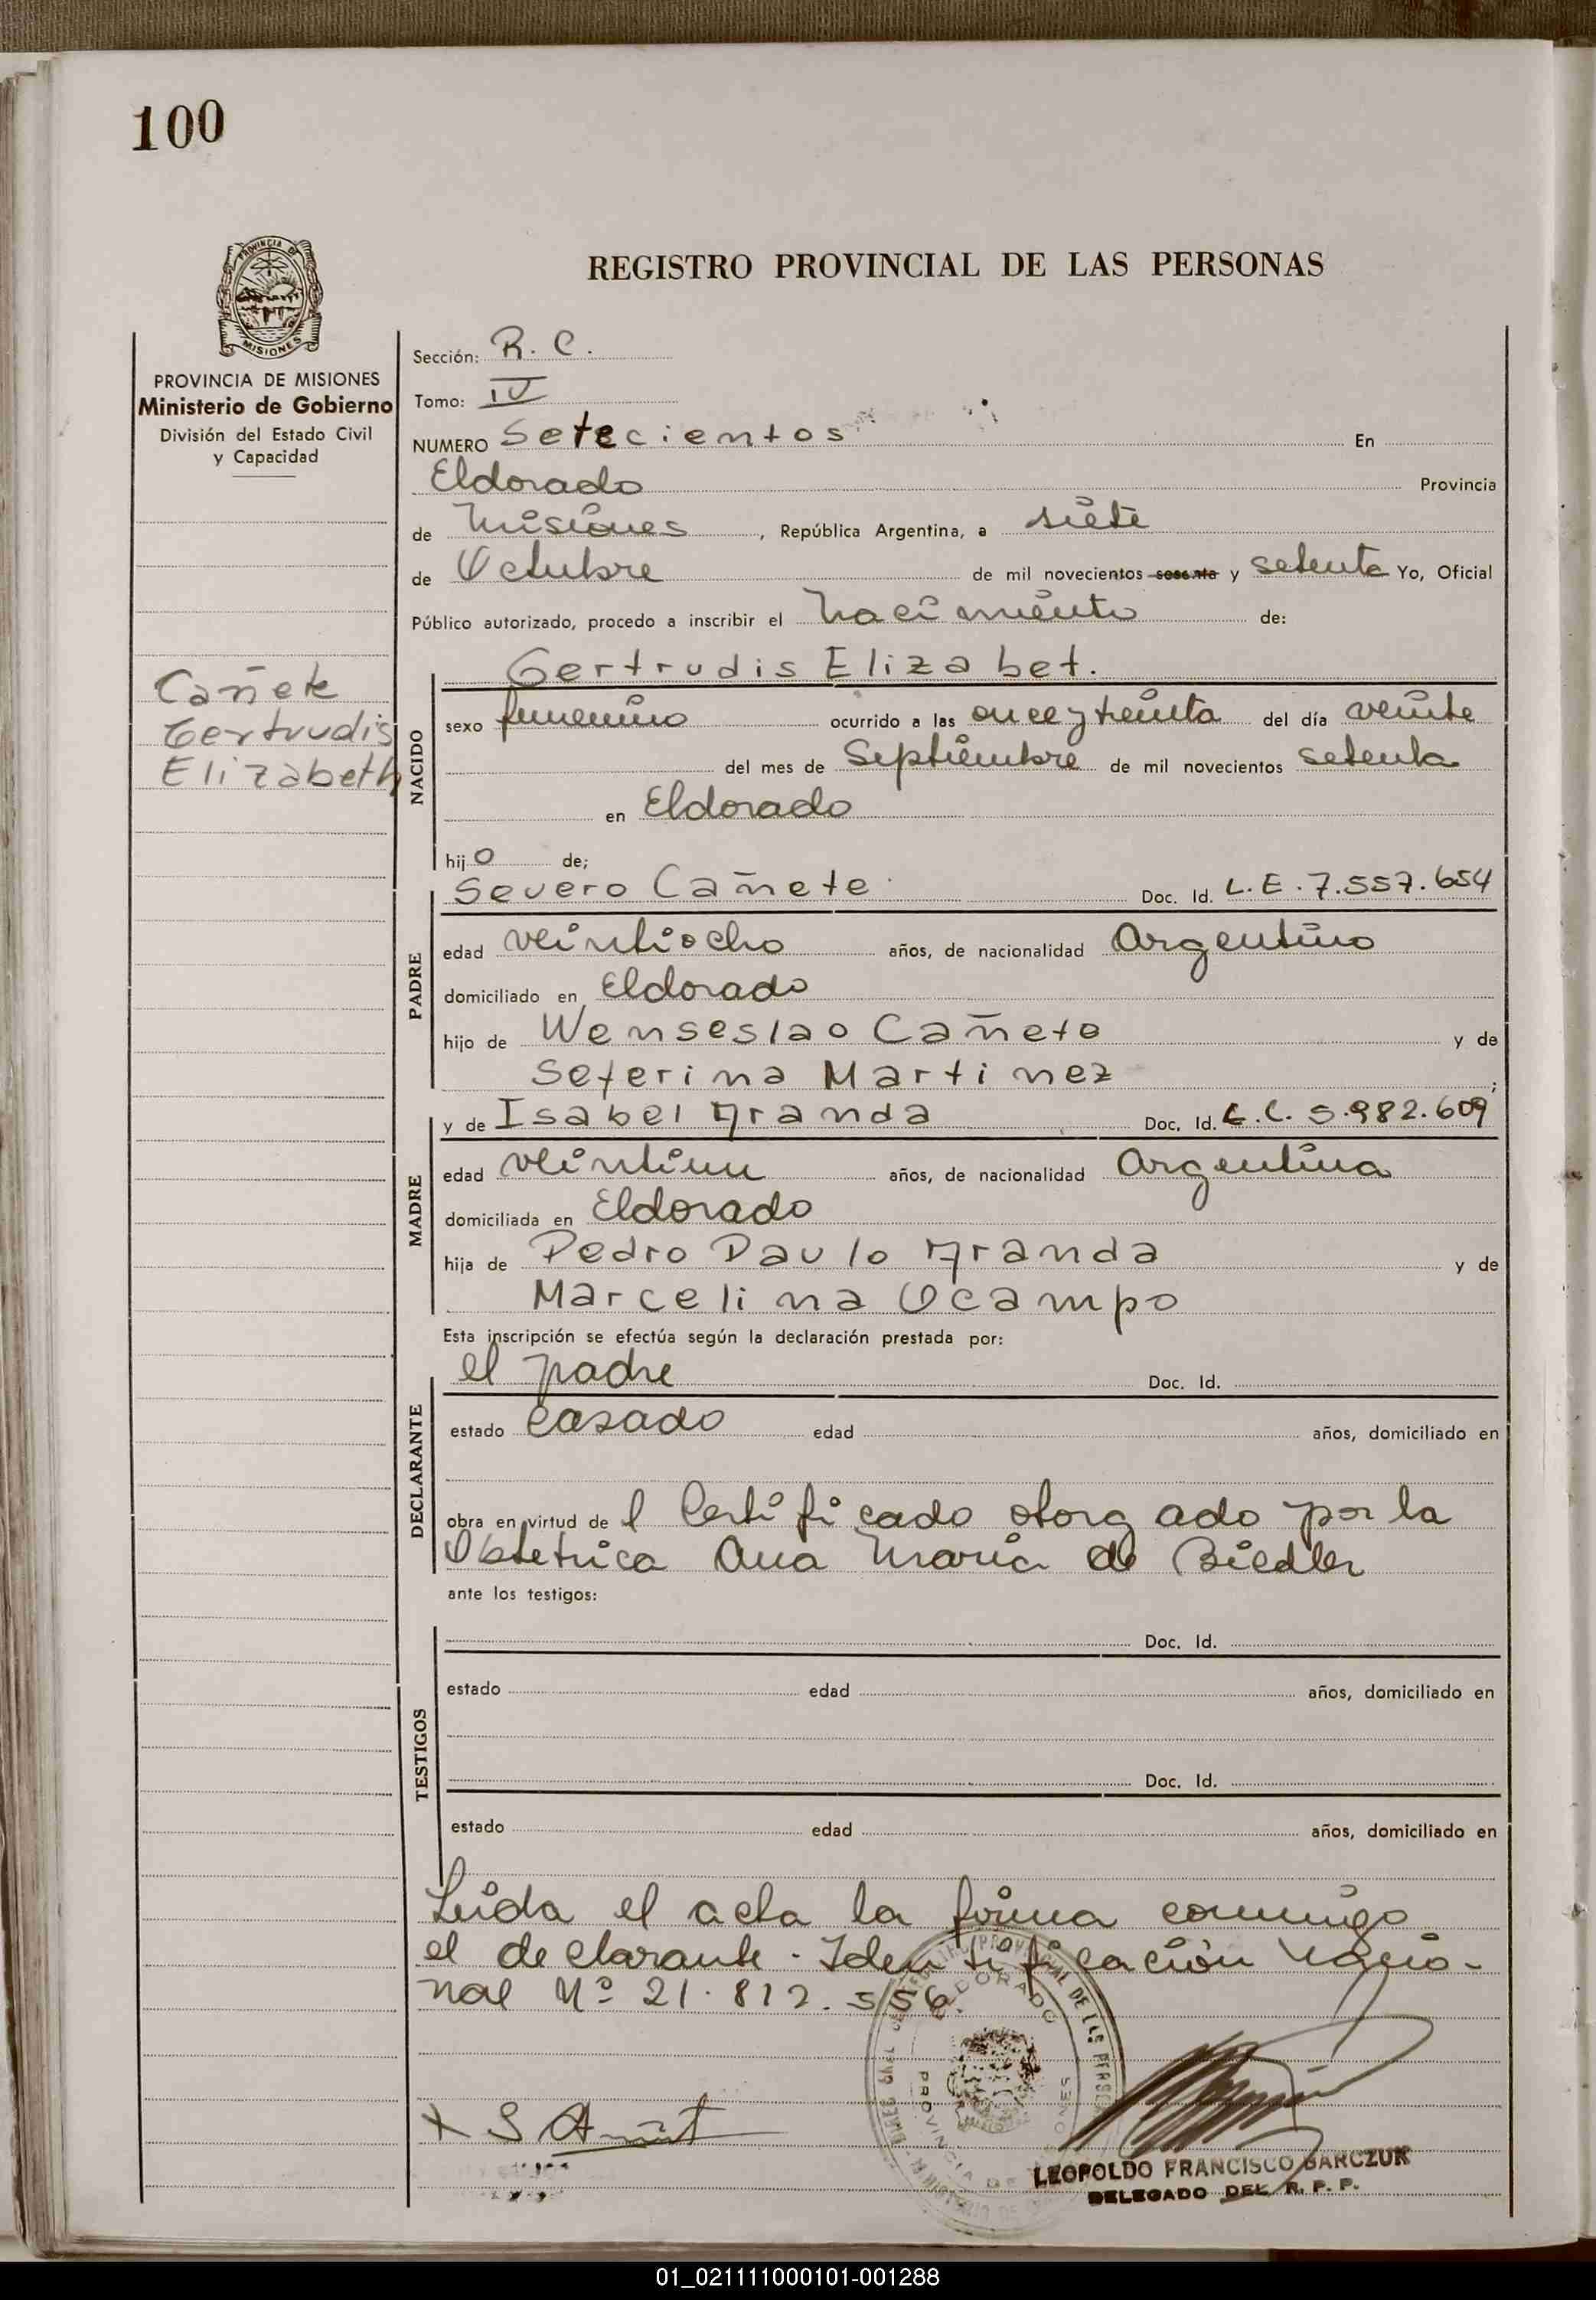 100
PROVINCIA DE
MISIONES
REGISTRO PROVINCIAL DE LAS PERSONAS
PROVINCIA DE MISIONES
Ministerio de Gobierno
División del Estado Civil
y Capacidad
Cañete
Gertrudis
Elizabeth
Sección: R. C.
Tomo: IV
NUMERO Setecientos En
Eldorado Provincia
de Misiones, República Argentina, a siete
de Octubre de mil novecientos sesenta y setenta Yo, Oficial
Público autorizado, procedo a inscribir el Nacimiento de:
Gertrudis Elizabet.
NACIDO
sexo femenino ocurrido a las once y treinta del día veinte
del mes de Septiembre de mil novecientos setenta
en Eldorado
hijo de;
Severo Cañete Doc. Id. L.E. 7.557.654
PADRE
edad veintiocho años, de nacionalidad Argentino
domiciliado en Eldorado
hijo de Wenseslao Cañete y de
Seferina Martinez;
y de Isabel Aranda Doc. Id. L.C. 5.982.609
MADRE
edad veintiun años, de nacionalidad Argentina
domiciliada en Eldorado
hija de Pedro Paulo Aranda y de
Marcelina Ocampo
Esta inscripción se efectúa según la declaración prestada por:
el padre Doc. Id.
DECLARANTE
estado casado edad años, domiciliado en
obra en virtud de l Certificado otorgado por la
Obstetrica Ana Maria de Biedler
ante los testigos:
Doc. Id.
TESTIGOS
estado edad años, domiciliado en
Doc. Id.
estado edad años, domiciliado en
Leida el acta la firma conmigo
el declarante. Identificación Nacio-
nal Nº 21.812.556.
ELDORADO
PROVINCIA DE MISIONES
LEOPOLDO FRANCISCO BARCZUK
DELEGADO DEL R. P. P.
01_021111000101-001288